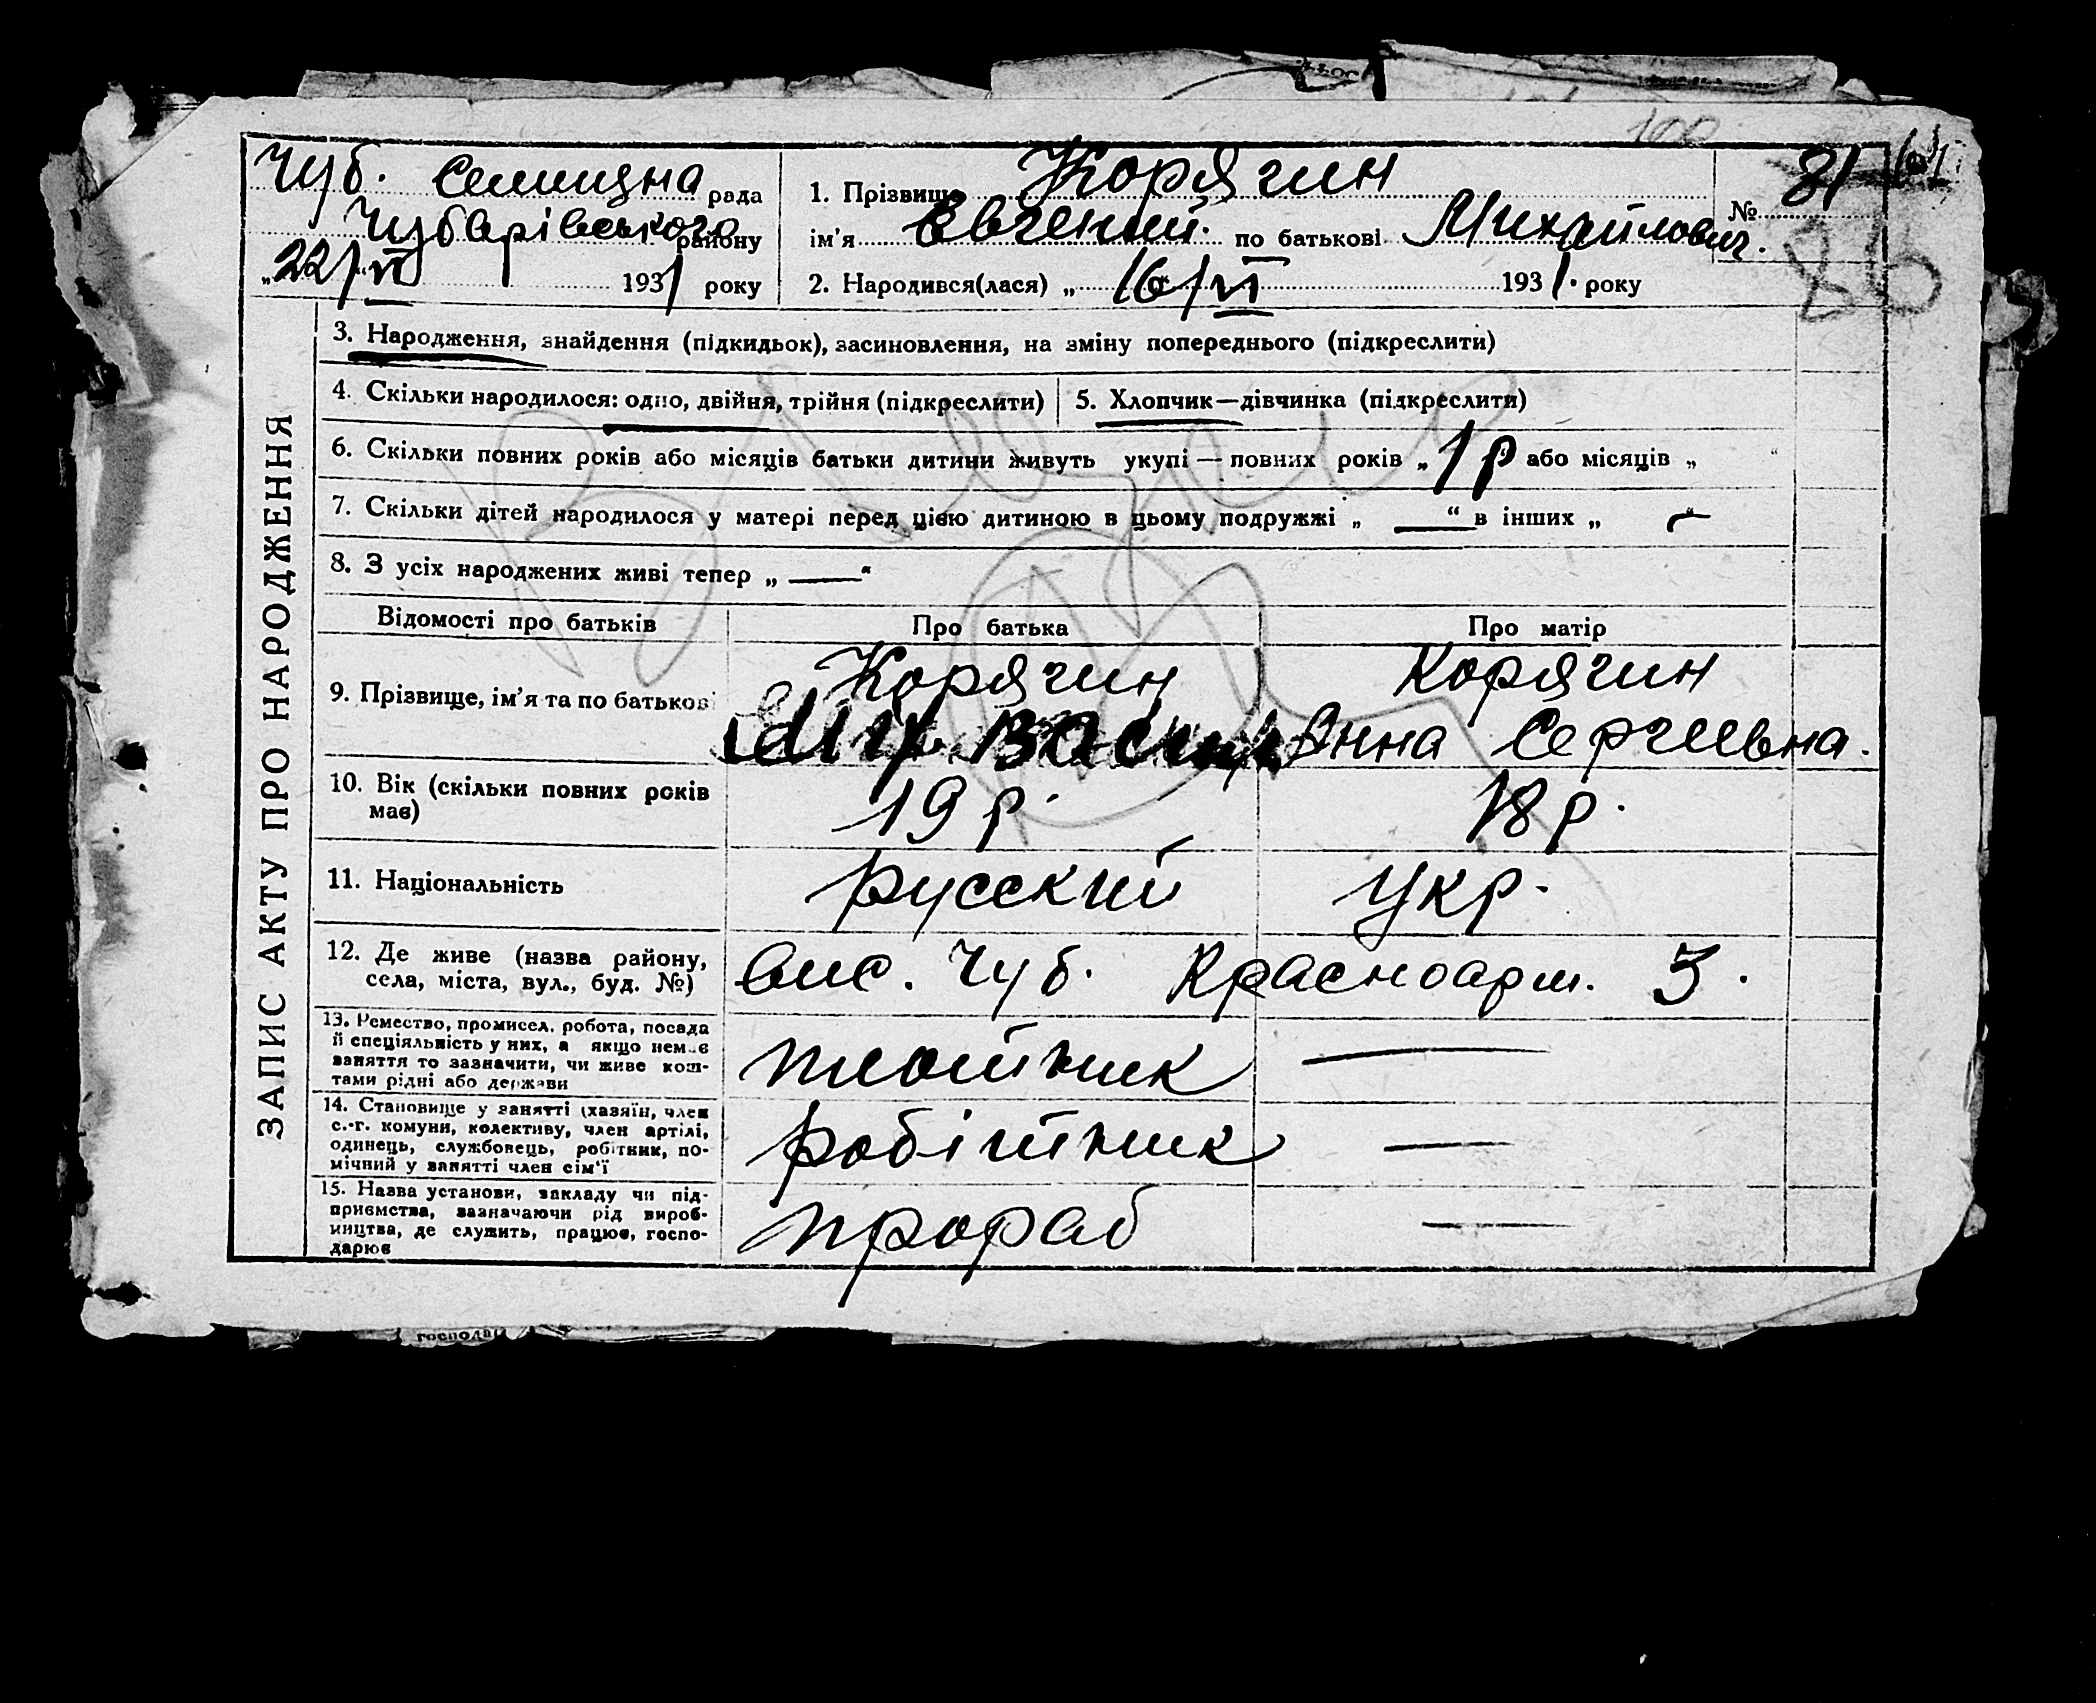 Чуб. Селищна рада
Чубарівського району
„22/VI“ 1931 року
1. Прізвище Корягин
ім’я Євгений. по батькові Михайлович.
2. Народився(лася) „16/VI 1931. року
№ 81
86
100
ЗАПИС АКТУ ПРО НАРОДЖЕННЯ
3. Народження, знайдення (підкидьок), засиновлення, на зміну попереднього (підкреслити)
4. Скільки народилося: одно, двійня, трійня (підкреслити)
5. Хлопчик—дівчинка (підкреслити)
6. Скільки повних років або місяців батьки дитини живуть укупі — повних років „1 р або місяців „ “
7. Скільки дітей народилося у матері перед цією дитиною в цьому подружжі „ — “ в інших „ — “
8. З усіх народжених живі тепер „ — “
Відомості про батьків Про батька Про матір
9. Прізвище, ім’я та по батькові
Корягин
Корягин
Анна Сергиевна.
10. Вік (скільки повних років
має)
19 р.
18 р.
11. Національність
русский
укр.
12. Де живе (назва району,
села, міста, вул., буд. №)
вис. Чуб. Красноарм. 3.
13. Ремество, промисел, робота, посада
й спеціяльність у них, а якщо немає
заняття то зазначити, чи живе кош-
тами рідні або держави
плотник
—
14. Становище у занятті (хазяїн, член
с.-г. комуни, колективу, член артілі,
одинець, службовець, робітник, по-
мічний у занятті член сім’ї
робітник
—
15. Назва установи, закладу чи під-
приємства, зазначаючи рід вироб-
ництва, де служить, працює, госпо-
дарює
прораб
—
господа